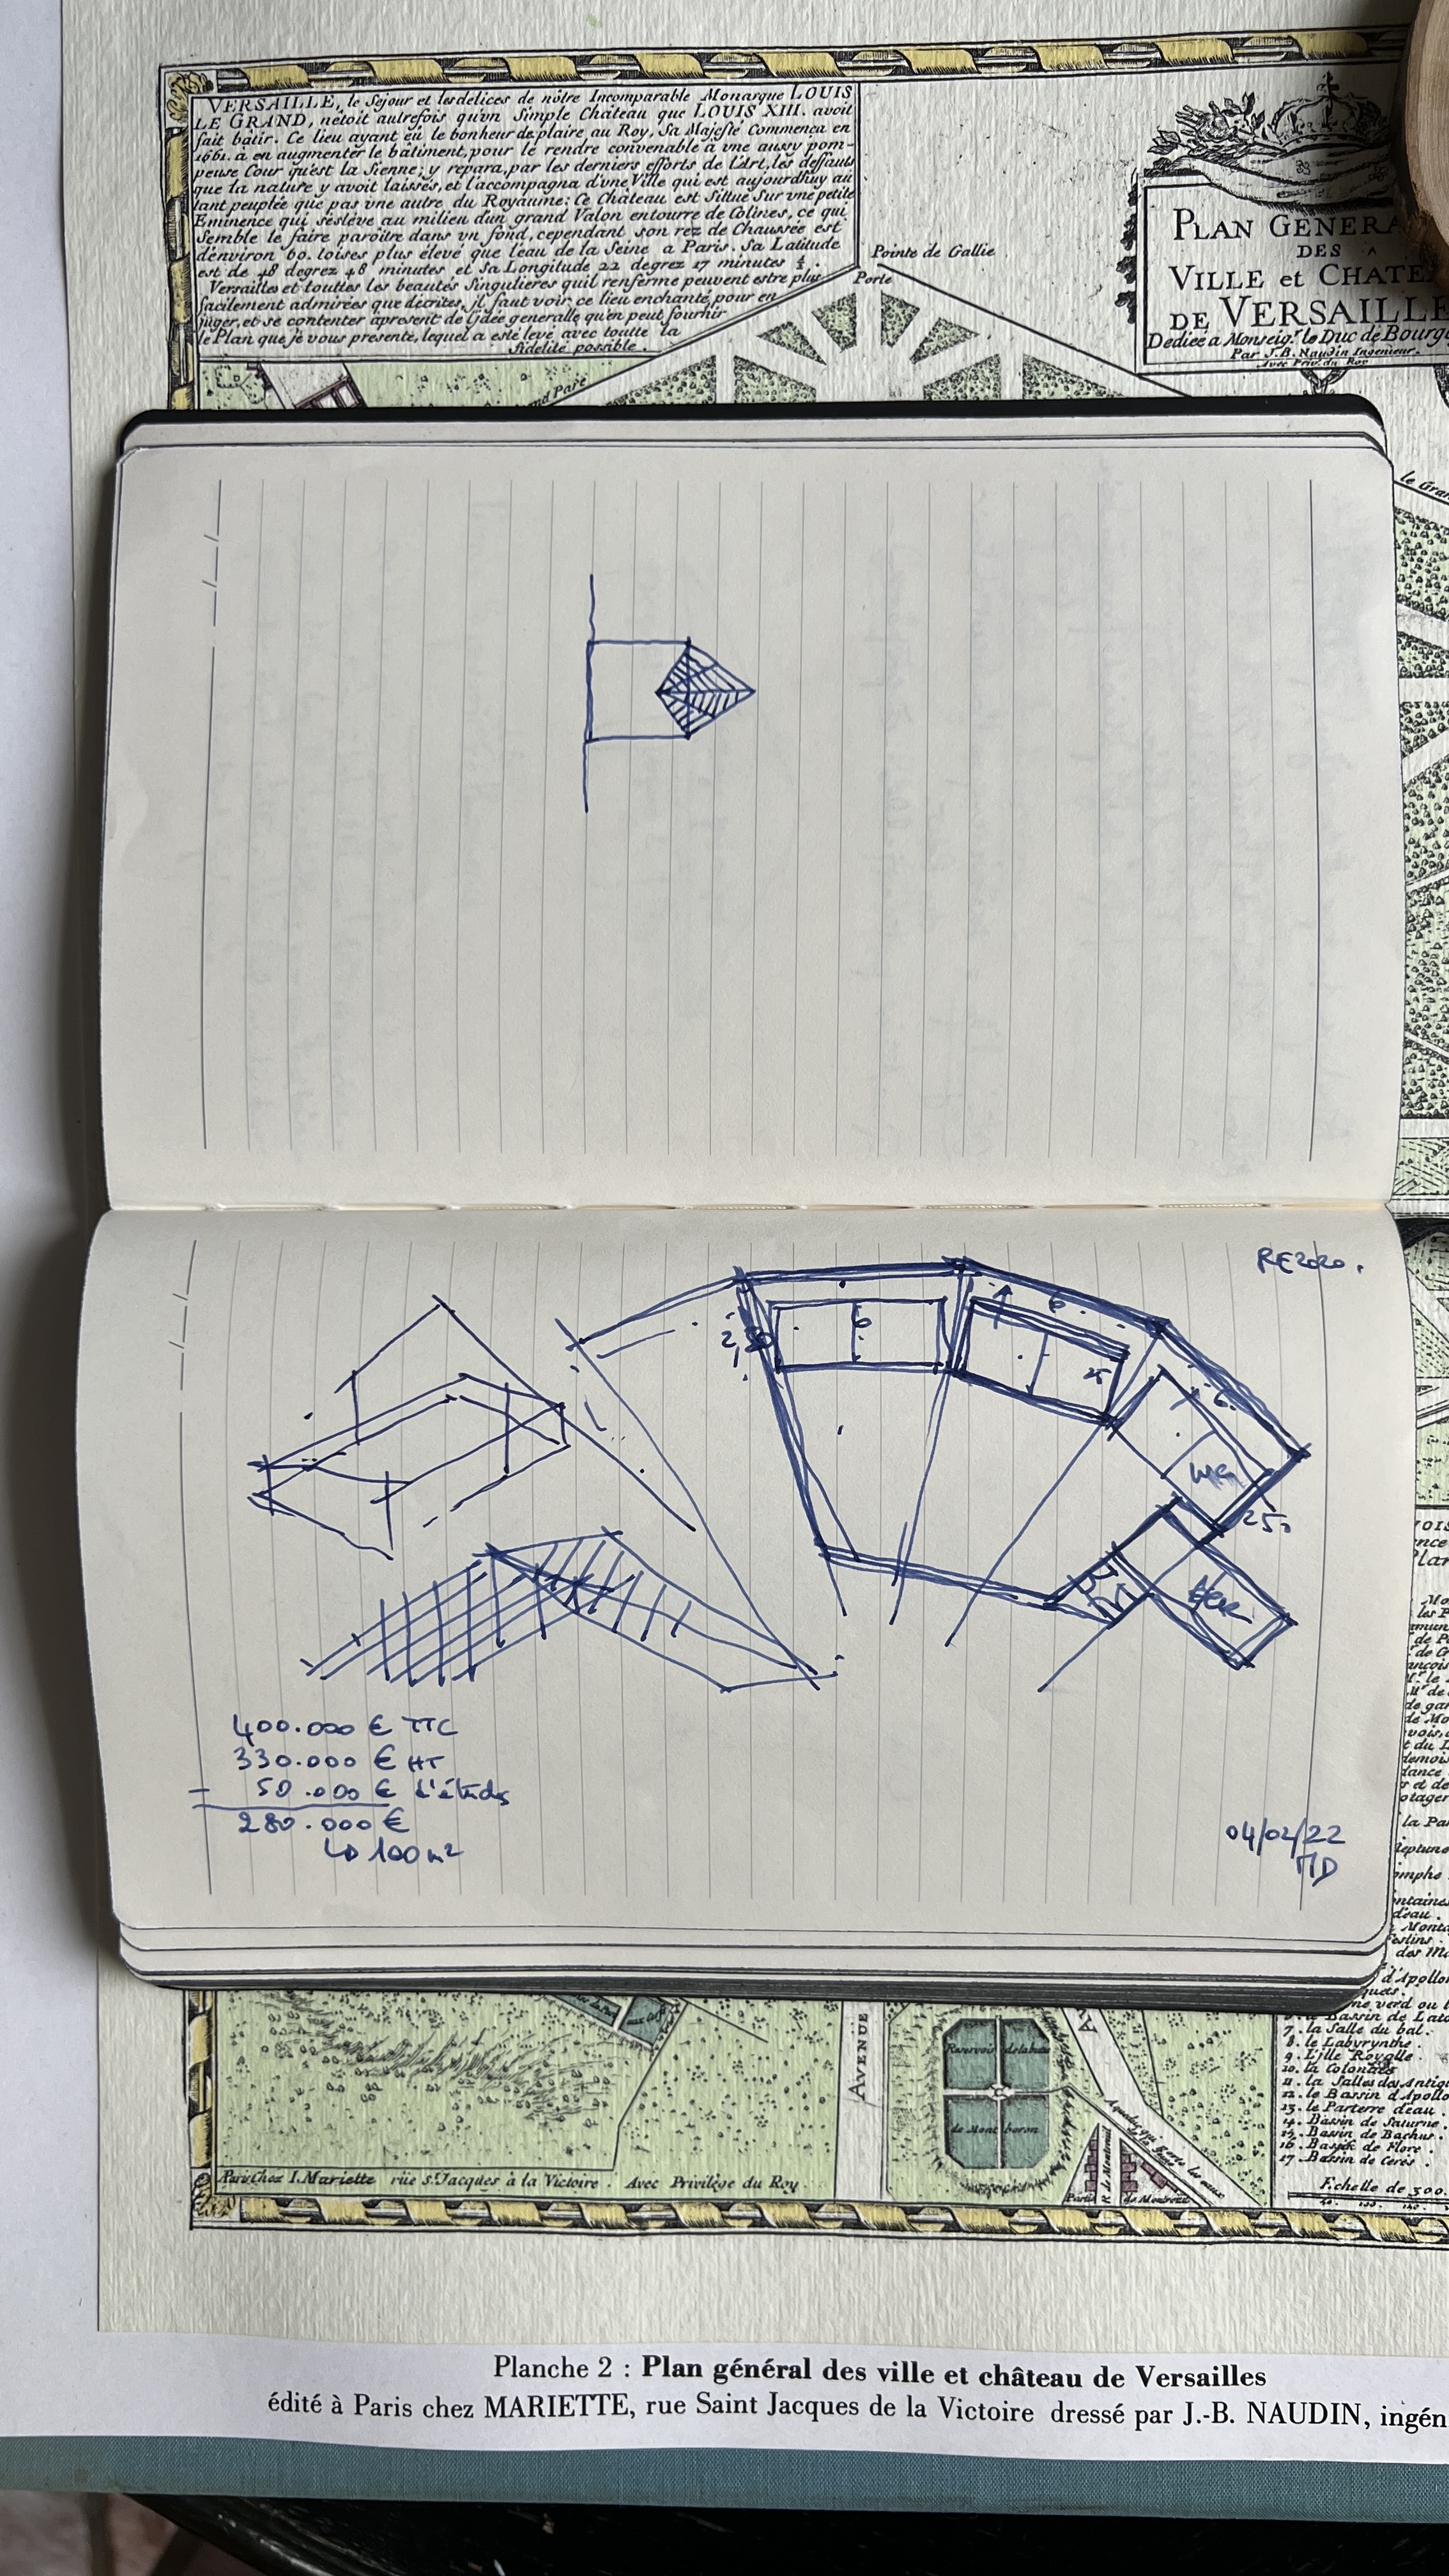 VERSAILLE, le Sejour et les delices de nôtre Incomparable Monarque LOUIS
LE GRAND, n'etoit autrefois qu'vn Simple Château que LOUIS XIII. avoit
fait bâtir. Ce lieu ayant eü le bonheur de plaire au Roy, Sa Majesté Commença en
1661. à en augmenter le bâtiment, pour le rendre convenable à vne aussy pom-
peuse Cour qu'est la Sienne; y repara, par les derniers efforts de l'Art, les deffauts
que la nature y avoit laissés, et l'accompagna d'vne Ville qui est aujourdhuy au
tant peuplée que pas vne autre du Royaume: Ce Château est Sittué Sur vne petite
Eminence qui s'esléve au milieu d'un grand Valon entourré de Colines, ce qui
Semble le faire paroître dans vn fond, cependant son rez de Chaussée est
d'environ 60. toises plus élevé que l'eau de la Seine a Paris. Sa Latitude
est de 48 degrez 48 minutes et Sa Longitude 22 degrez 17 minutes ½.
Versailles et touttes les beautés Singulieres quil renferme peuvent estre plus
facilement admirées que décrites, jl faut voir ce lieu enchanté pour en
juger, et se contenter apresent de l'jdée generalle qu'en peut fournir
le Plan que je vous presente, lequel a esté levé avec toutte la
fidelité possible.
Pointe de Gallie
Porte
PLAN GENERA
DES
VILLE et CHATE
DE VERSAILLE
Dediée a Monseigr. le Duc de Bourg
Par J.B. Naudin Ingenieur.
Avec Priv. du Roy
nd Parc
le Gran
RE2020.
2,50
6
6
25
6.
250
400.000 € TTC
330.000 € HT
- 50.000 € d'études
280.000 €
↳ 100 m²
04/02/22
MD
la Pa
d'Apollo
7. la Salle du bal.
8. le Labyrynthe.
9. L'Ille Royolle.
10. la Colonnade
11. la Salles des Antiq
12. le Bassin d'Apollo
13. le Parterre d'eau.
14. Bassin de Saturne.
15. Bassin de Bachus.
16. Bassin de Flore.
17. Bassin de Cerés.
Echelle de 300.
AVENUE
A
Reservoirs de la bute
de Mont boron
Aqueduc qui porte les eaux
de Montreuil
Paris Chez I. Mariette rüe St. Jacques à la Victoire. Avec Privilège du Roy.
Planche 2 : Plan général des ville et château de Versailles
édité à Paris chez MARIETTE, rue Saint Jacques de la Victoire dressé par J.-B. NAUDIN, ingén